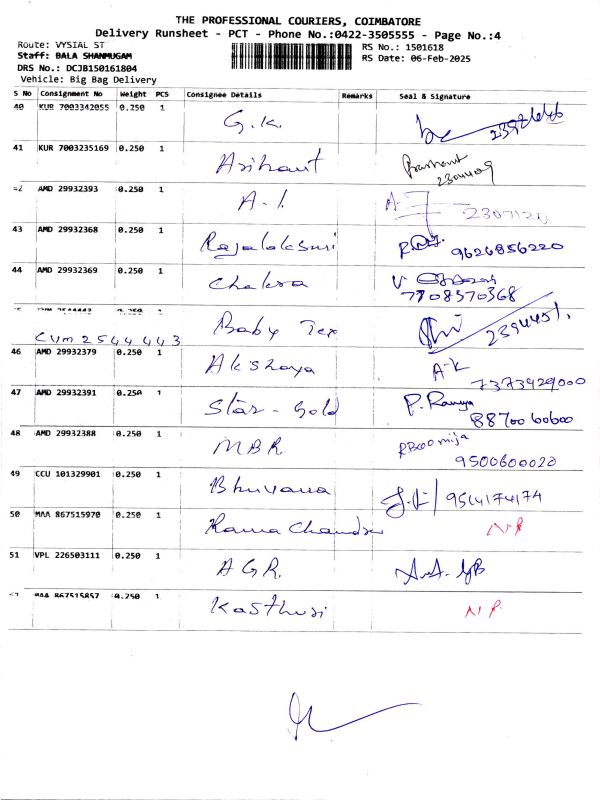 THE PROFESSIONAL COURIERS, COIMBATORE
Delivery Runsheet - PCT - Phone No.:0422-3505555 - Page No.:4
Route: VYSIAL ST
RS No.: 1501618
Staff: BALA SHANMUGAM
RS Date: 06-Feb-2025
DRS No.: DCJB150161804
Vehicle: Big Bag Delivery
S No Consignment No Weight PCS Consignee Details Remarks Seal & Signature
40 KUR 7003342055 0.250 1 G.K.
41 KUR 7003235169 0.250 1 Arihant Prashant
42 AMD 29932393 0.250 1 A-1.
43 AMD 29932368 0.250 1 Rajalakshmi 9626856220
44 AMD 29932369 0.250 1 Chakra 7708570368
CUM 2544443 0.250 1 Baby Tex 2394451
CUM 2544443
46 AMD 29932379 0.250 1 Akshaya A-K 7373929000
47 AMD 29932391 0.250 1 Star-Gold P. Ramya 8870060600
48 AMD 29932388 0.250 1 MBR 9500600020
49 CCU 101329901 0.250 1 Bhuvana 9514174174
50 MAA 867515970 0.250 1 Rama Chandra NR
51 VPL 226503111 0.250 1 AGR.
52 MAA 867515857 0.250 1 Kasthuri NR